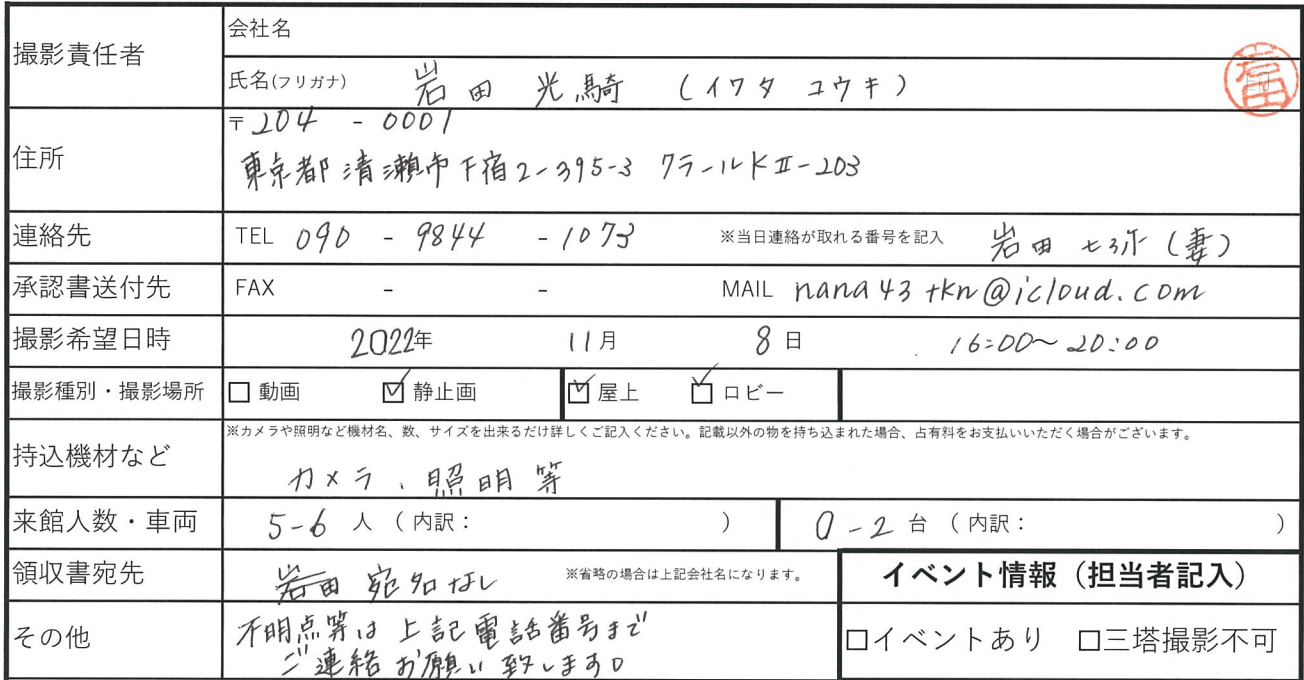 撮影責任者
会社名
氏名(フリガナ) 岩田 光騎 (イワタ コウキ)
住所
〒204 - 0001
東京都清瀬市下宿2-395-3 クラールKⅡ-203
連絡先 TEL 090 - 9844 - 1073 ※当日連絡が取れる番号を記入 岩田 七弥(妻)
承認書送付先 FAX - - MAIL nana43tkn@icloud.com
撮影希望日時 2022年 11月 8日 16:00~20:00
撮影種別・撮影場所 □ 動画 ☑ 静止画 ☑ 屋上 ☑ ロビー
※カメラや照明など機材名、数、サイズを出来るだけ詳しくご記入ください。記載以外の物を持ち込まれた場合、占有料をお支払いいただく場合がございます。
持込機材など カメラ、照明等
来館人数・車両 5-6 人 ( 内訳: ) 0-2 台 ( 内訳: )
領収書宛先 岩田 宛名なし ※省略の場合は上記会社名になります。
イベント情報(担当者記入)
その他 不明点等は上記電話番号まで
ご連絡お願い致します。
□イベントあり □三塔撮影不可